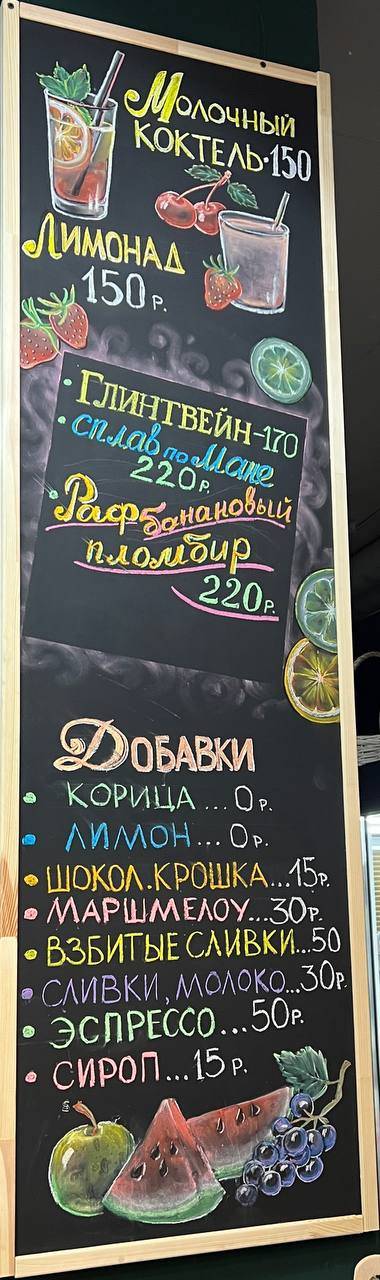 Молочный
коктель·150
Лимонад
150 р.
·Глинтвейн-170
·сплав по Мане
220р.
·Раф банановый
пломбир
220р.
Добавки
· корица...0 р.
· лимон...0р.
· шокол.крошка...15р.
· маршмелоу...30р.
· взбитые сливки...50
· сливки, молоко...30р.
· эспрессо...50р.
· сироп...15 р.